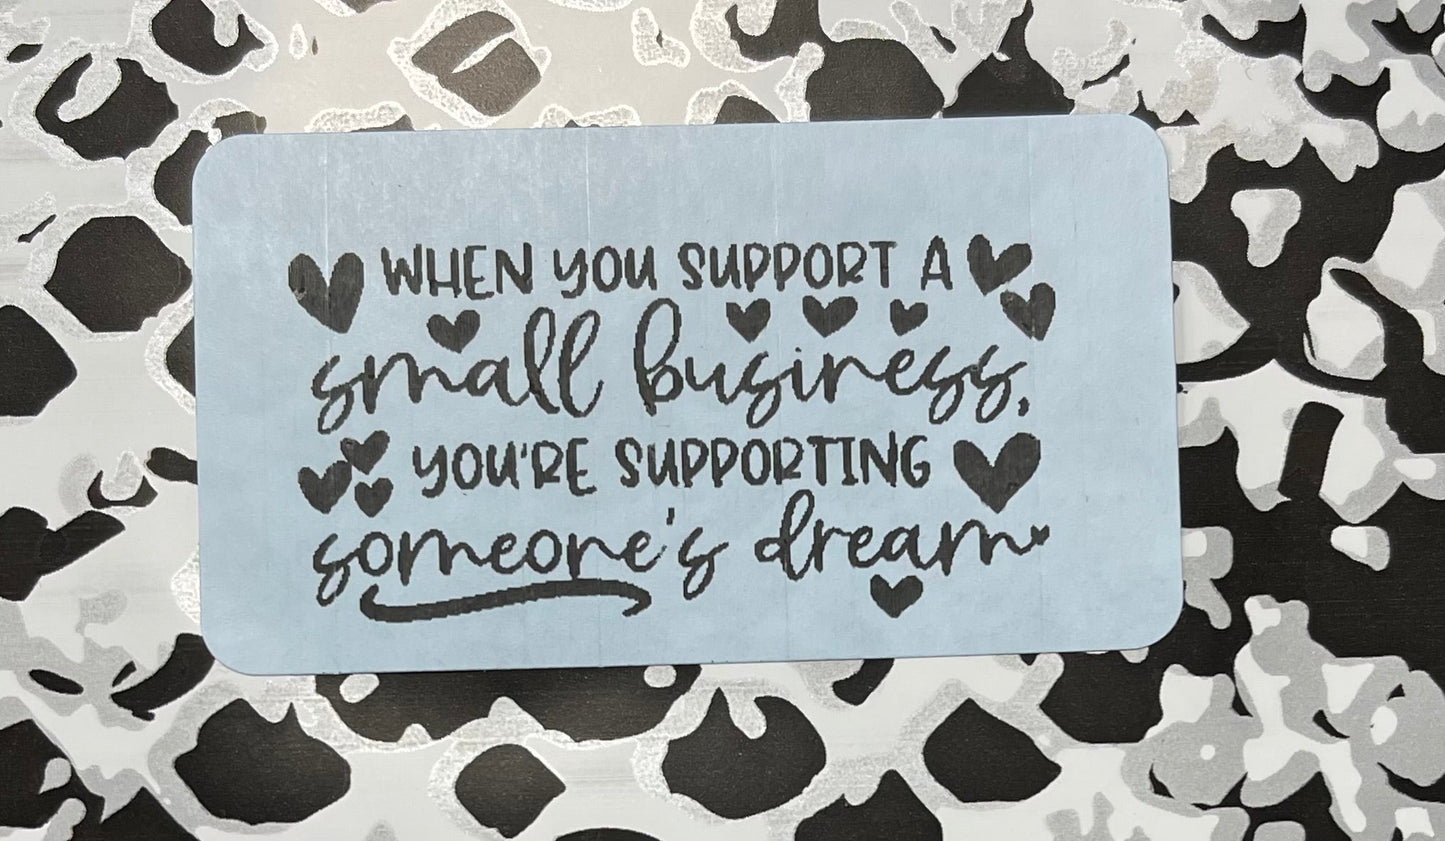 WHEN YOU SUPPORT A
small business,
YOU'RE SUPPORTING
someone's dream